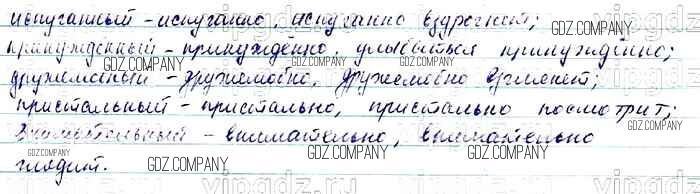 испуганный - испуганно, испуганно вздрогнет;
принуждённый - принуждённо, улыбаться принуждённо;
дружелюбный - дружелюбно, дружелюбно взглянет;
пристальный - пристально, пристально посмотрит;
Внимательный - внимательно, внимательно
глядит.
GDZ.COMPANY
GDZ.COMPANY
GDZ.COMPANY
GDZ.COMPANY
GDZ.COMPANY
GDZ.COMPANY
GDZ.COMPANY
GDZ.COMPANY
vipgdz.ru